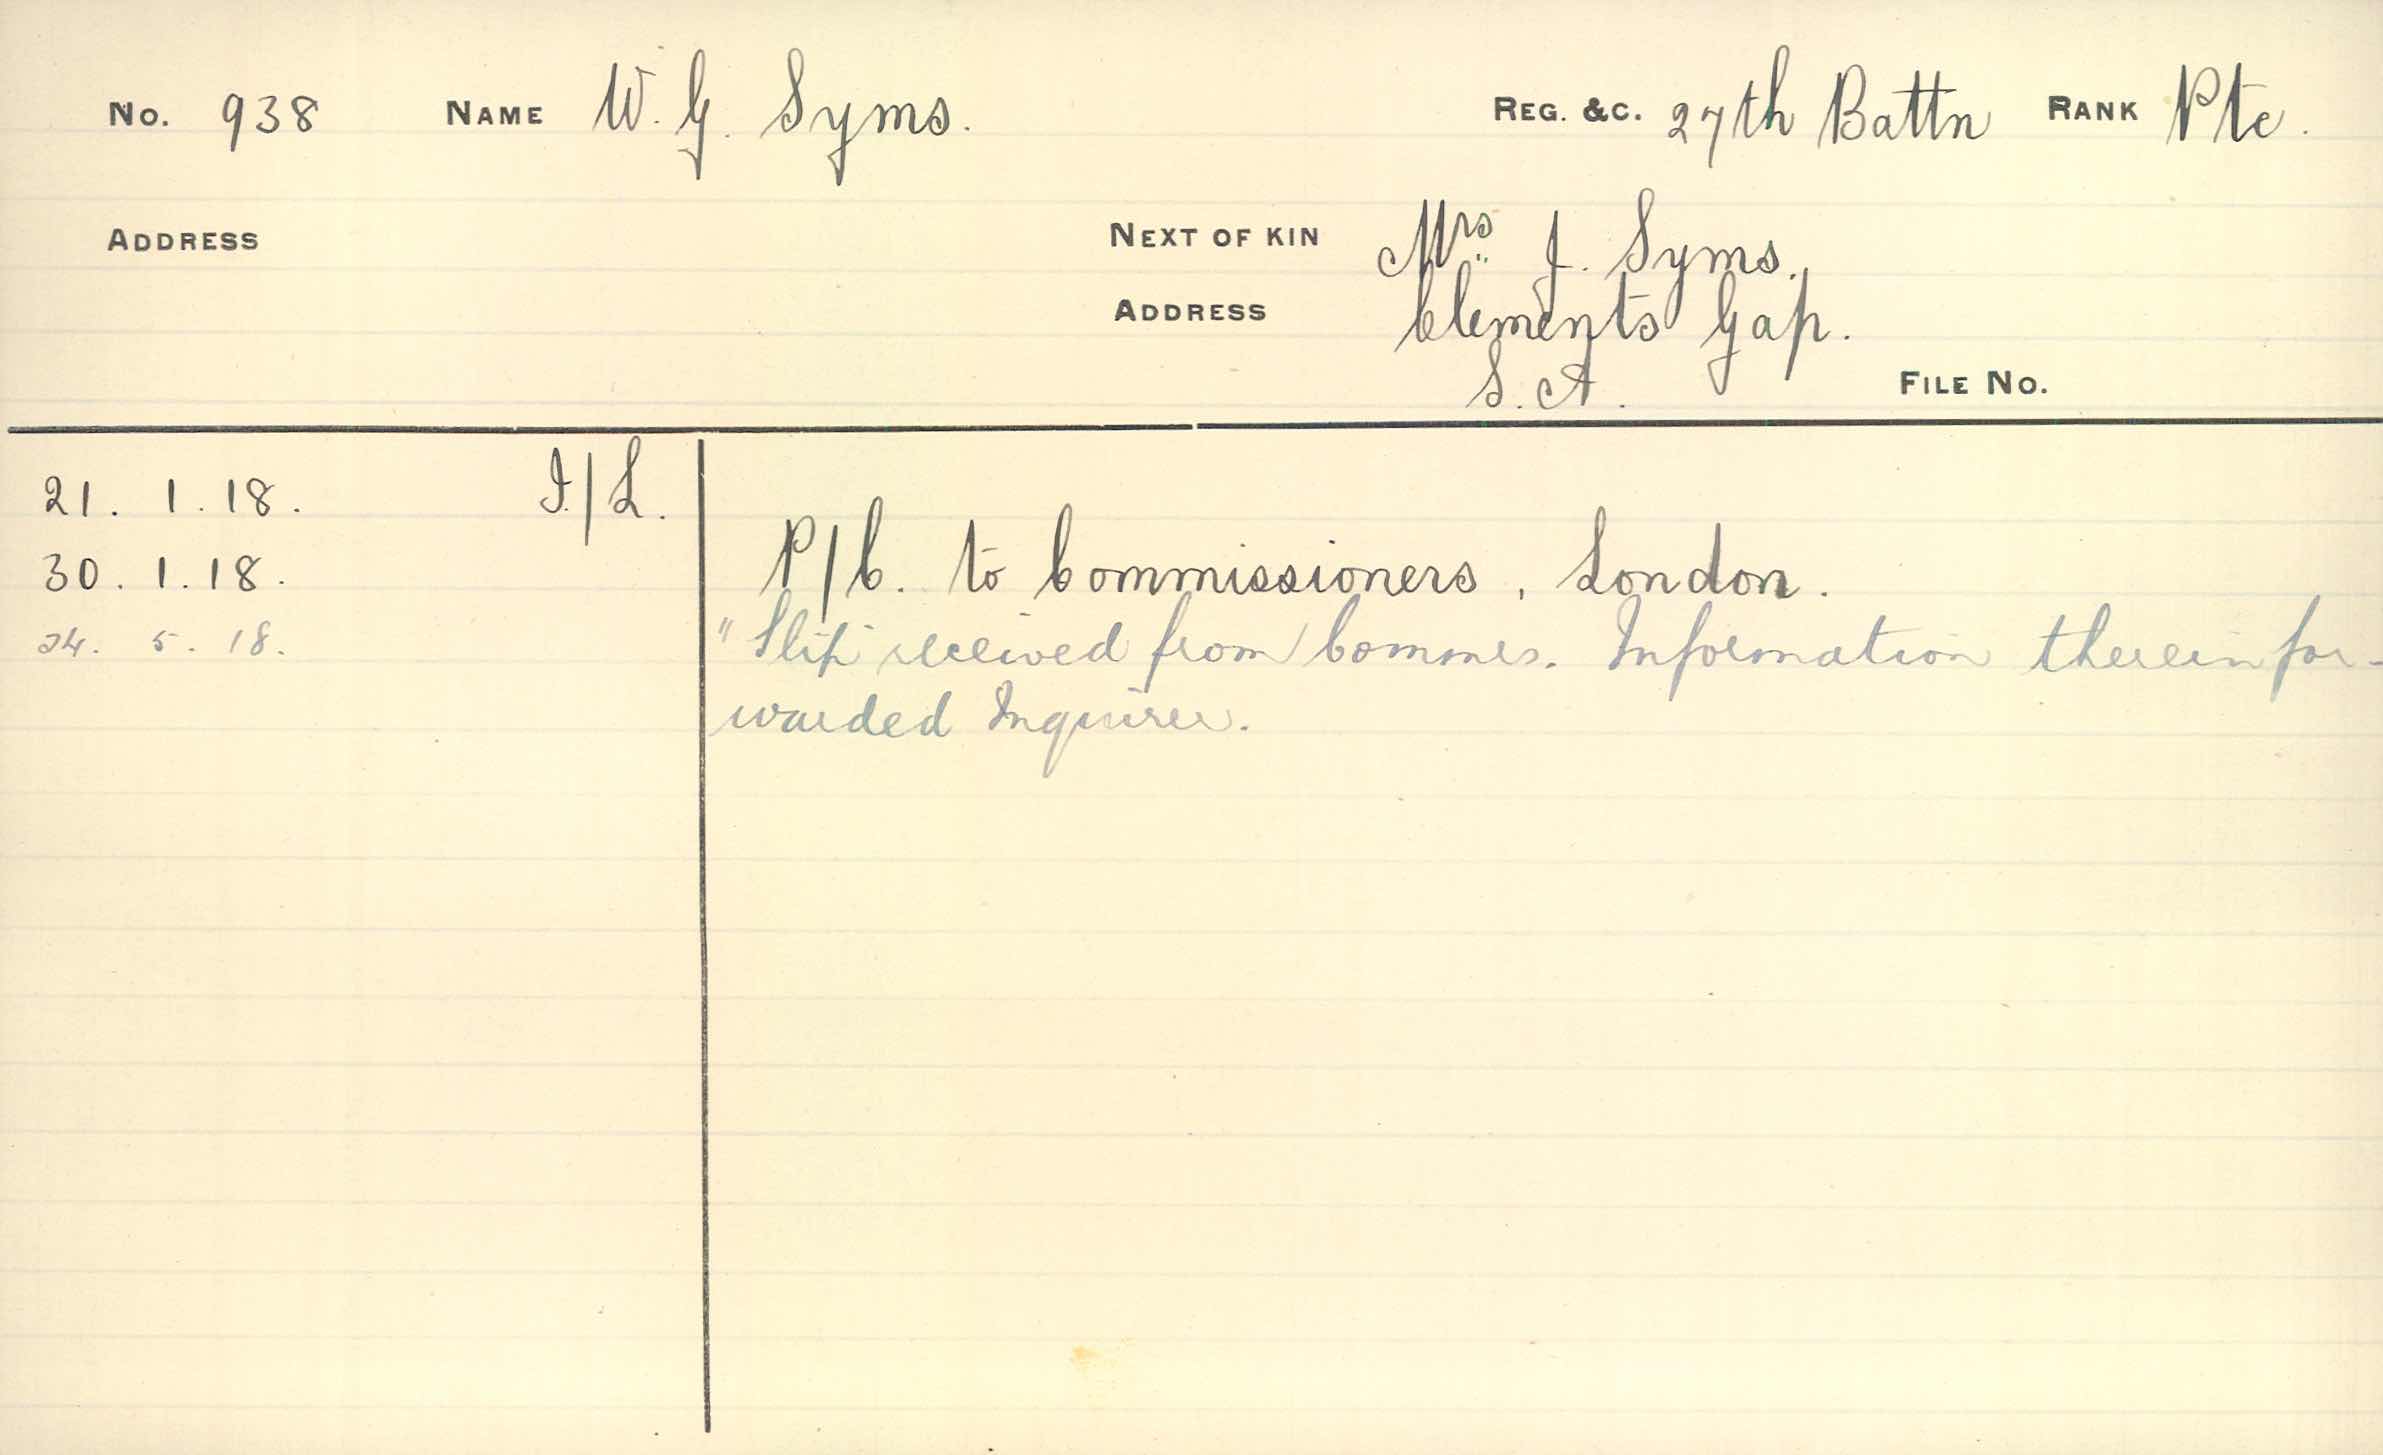 No. 938 NAME W. G. Syms. REG. &C. 27th Battn RANK Pte.
ADDRESS NEXT OF KIN Mrs J. Syms.
ADDRESS Clements Gap.
S. A. FILE No.
21. 1. 18. I/L.
30. 1. 18. P/C. to Commissioners, London.
24. 5. 18. "Slip" received from Commrs. Information therein for-
warded Inquirer.